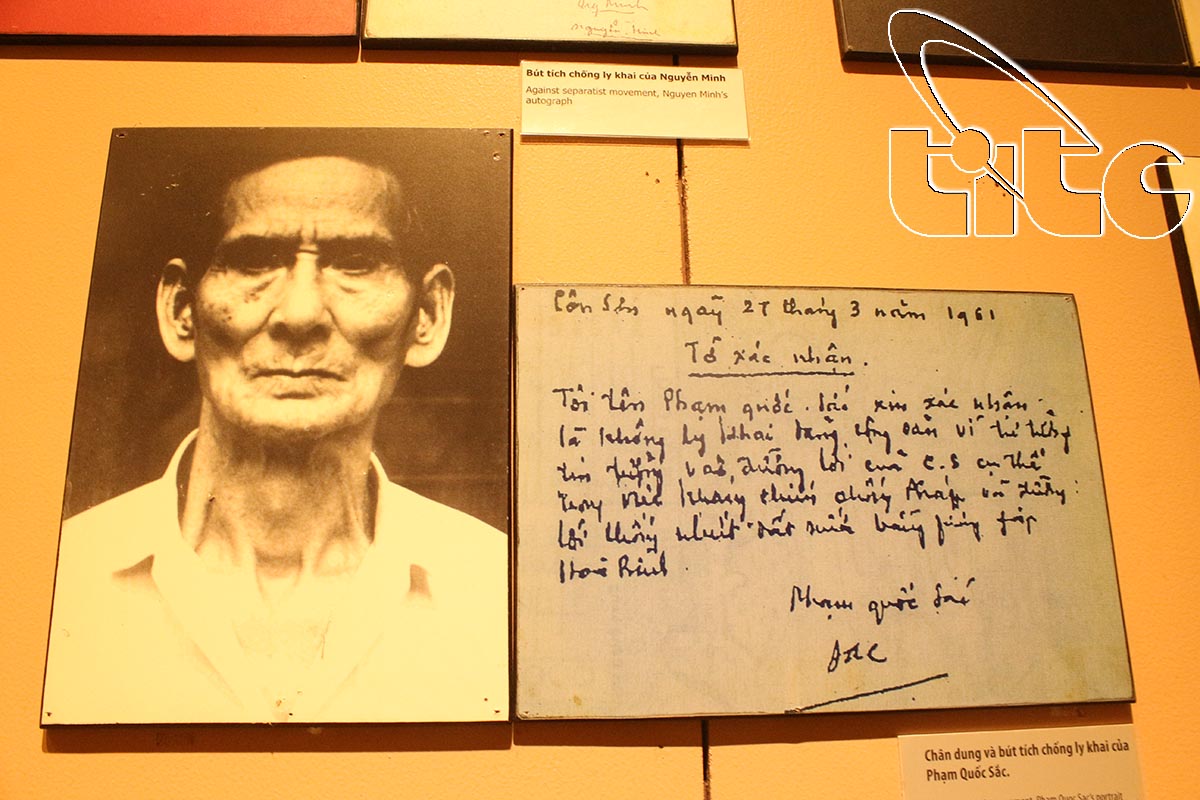 Nguyễn Minh
Bút tích chống ly khai của Nguyễn Minh
Against separatist movement, Nguyen Minh's
autograph
titc
Côn Sơn ngày 27 tháng 3 năm 1961
Tờ xác nhận.
Tôi tên Phạm quốc Sắc xin xác nhận
là không ly khai Đảng cộng sản vì tư tưởng
tin tưởng vào đường lối của C.S cụ thể
trong việc kháng chiến chống Pháp và đường
lối thống nhứt đất nước bằng phương pháp
Hoà Bình.
Phạm quốc Sắc
Sắc
Chân dung và bút tích chống ly khai của
Phạm Quốc Sắc.
Pham Quoc Sac's portrait